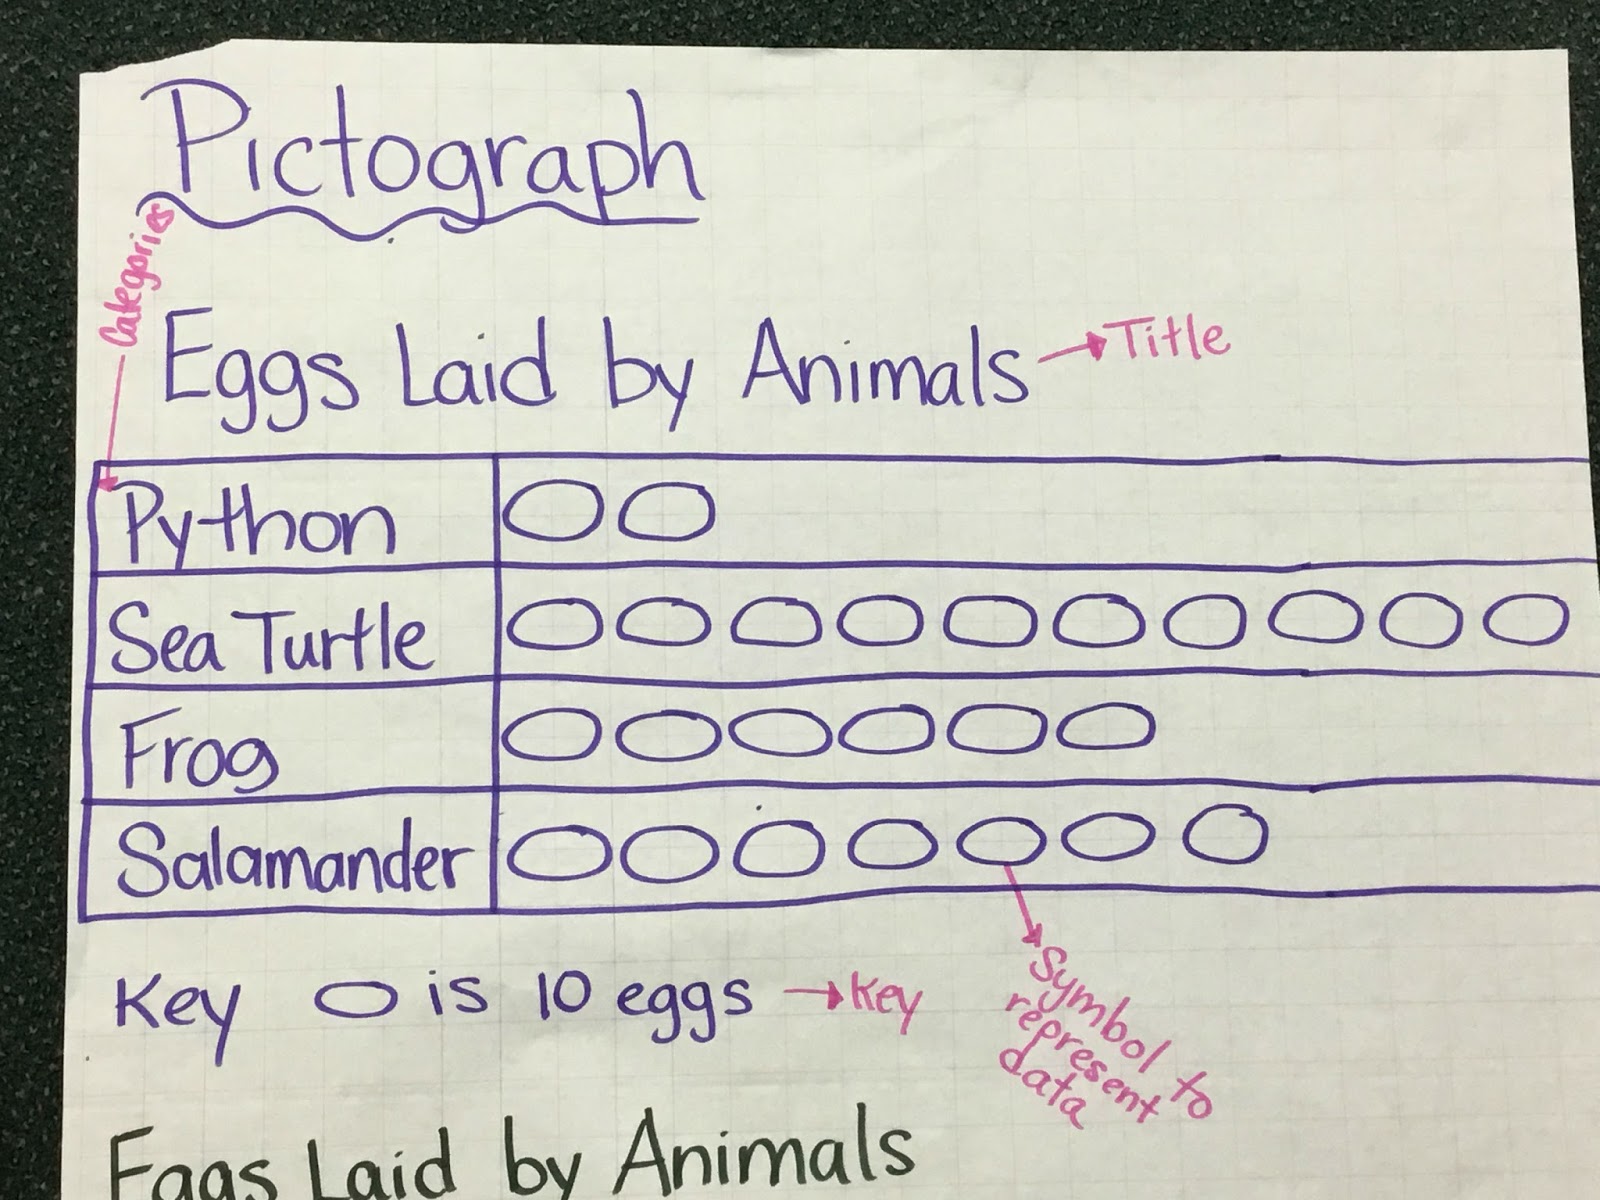 Pictograph
Categories
Eggs Laid by Animals → Title
Python
Sea Turtle
Frog
Salamander
Key is 10 eggs → Key
Symbol to
represent
data
Eggs Laid by Animals